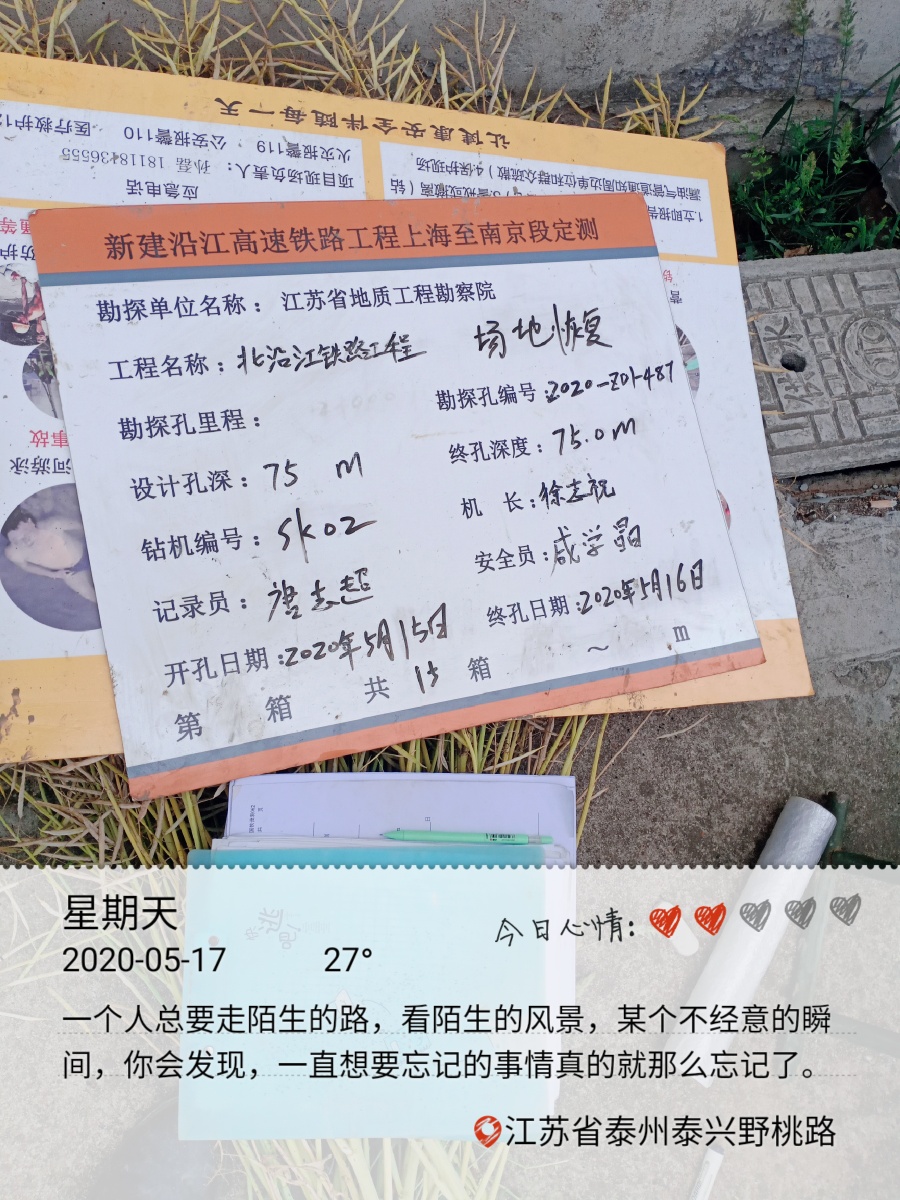 让健康安全伴随每一天
应急电话
项目现场负责人：孙磊 18118436555
火灾报警119 公安报警110 医疗救护12
1.立即报告
漏油气管道周知通知周边单位和群众疏散 4保护现场
河游泳
新建沿江高速铁路工程上海至南京段定测
勘探单位名称：江苏省地质工程勘察院
工程名称：北沿江铁路工程 场地恢复
勘探孔里程： 勘探孔编号：2020-Z01-487
设计孔深：75 m 终孔深度：75.0m
钻机编号：SK02 机 长：徐志祝
记录员：唐志超 安全员：咸学晶
开孔日期：2020年5月15日 终孔日期：2020年5月16日
第 箱 共 15 箱 ~ m
星期天
2020-05-17 27°
今日心情：
一个人总要走陌生的路，看陌生的风景，某个不经意的瞬
间，你会发现，一直想要忘记的事情真的就那么忘记了。
江苏省泰州泰兴野桃路